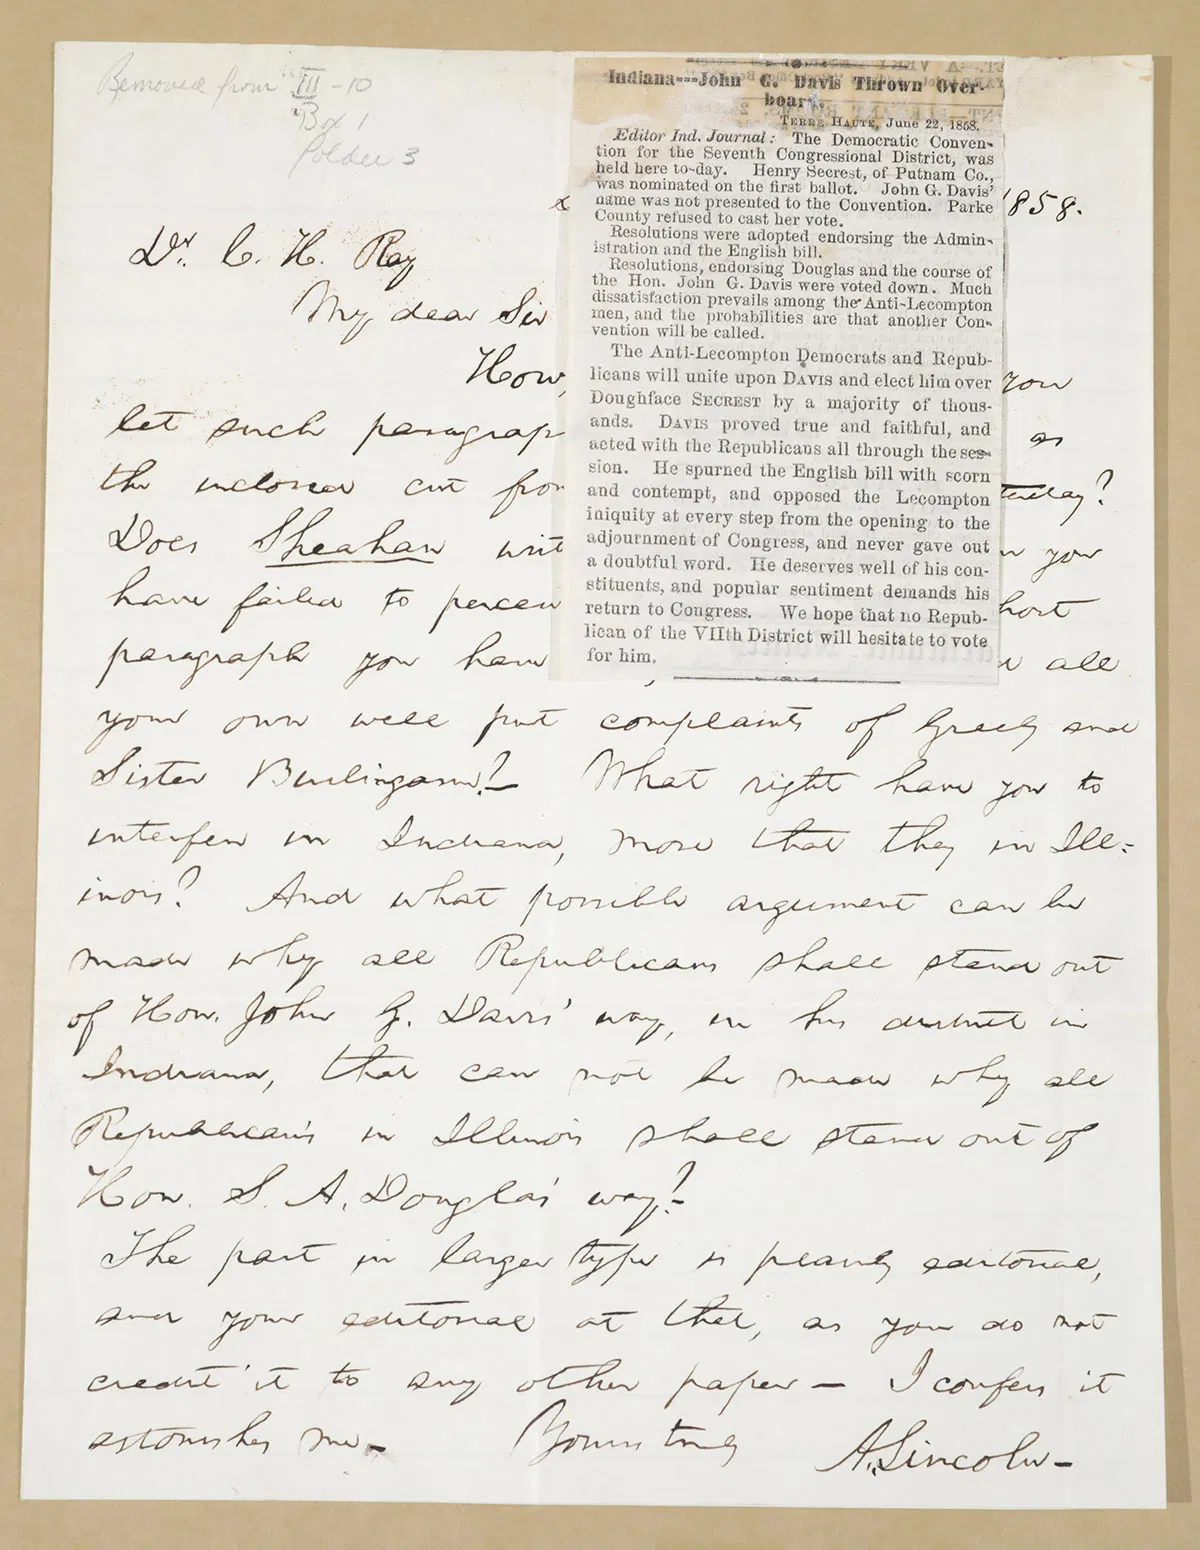 Removed from III-10
Box 1
Folder 3
Indiana---John G. Davis Thrown Over-
board.
TERRE HAUTE, June 22, 1858.
Editor Ind. Journal: The Democratic Conven-
tion for the Seventh Congressional District, was
held here to-day. Henry Secrest, of Putnam Co.,
was nominated on the first ballot. John G. Davis'
name was not presented to the Convention. Parke
County refused to cast her vote.
Resolutions were adopted endorsing the Admin-
istration and the English bill.
Resolutions, endorsing Douglas and the course of
the Hon. John G. Davis were voted down. Much
dissatisfaction prevails among the Anti-Lecompton
men, and the probabilities are that another Con-
vention will be called.
The Anti-Lecompton Democrats and Repub-
licans will unite upon DAVIS and elect him over
Doughface SECREST by a majority of thous-
ands. DAVIS proved true and faithful, and
acted with the Republicans all through the ses-
sion. He spurned the English bill with scorn
and contempt, and opposed the Lecompton
iniquity at every step from the opening to the
adjournment of Congress, and never gave out
a doubtful word. He deserves well of his con-
stituents, and popular sentiment demands his
return to Congress. We hope that no Repub-
lican of the VIIth District will hesitate to vote
for him.
1858.
Dr. C. H. Ray
My dear Sir
How, you
let such paragrap as
the inclosed cut from terday?
Does Sheahan writ you
have failed to perceiv hort
paragraph you have all
your own well put complaints of Greely and
Sister Burlingame?—
What right have you to
interfere in Indiana, more than they in Ill-
inois? And what possible argument can be
made why all Republicans shall stand out
of Hon. John G. Davis' way, in his district in
Indiana, that can not be made why all
Republicans in Illinois shall stand out of
Hon. S. A. Douglas' way?—
The part in larger type is plainly editorial,
and your editorial at that, as you do not
credit it to any other paper— I confess it
astonishes me—
Yours truly
A. Lincoln—